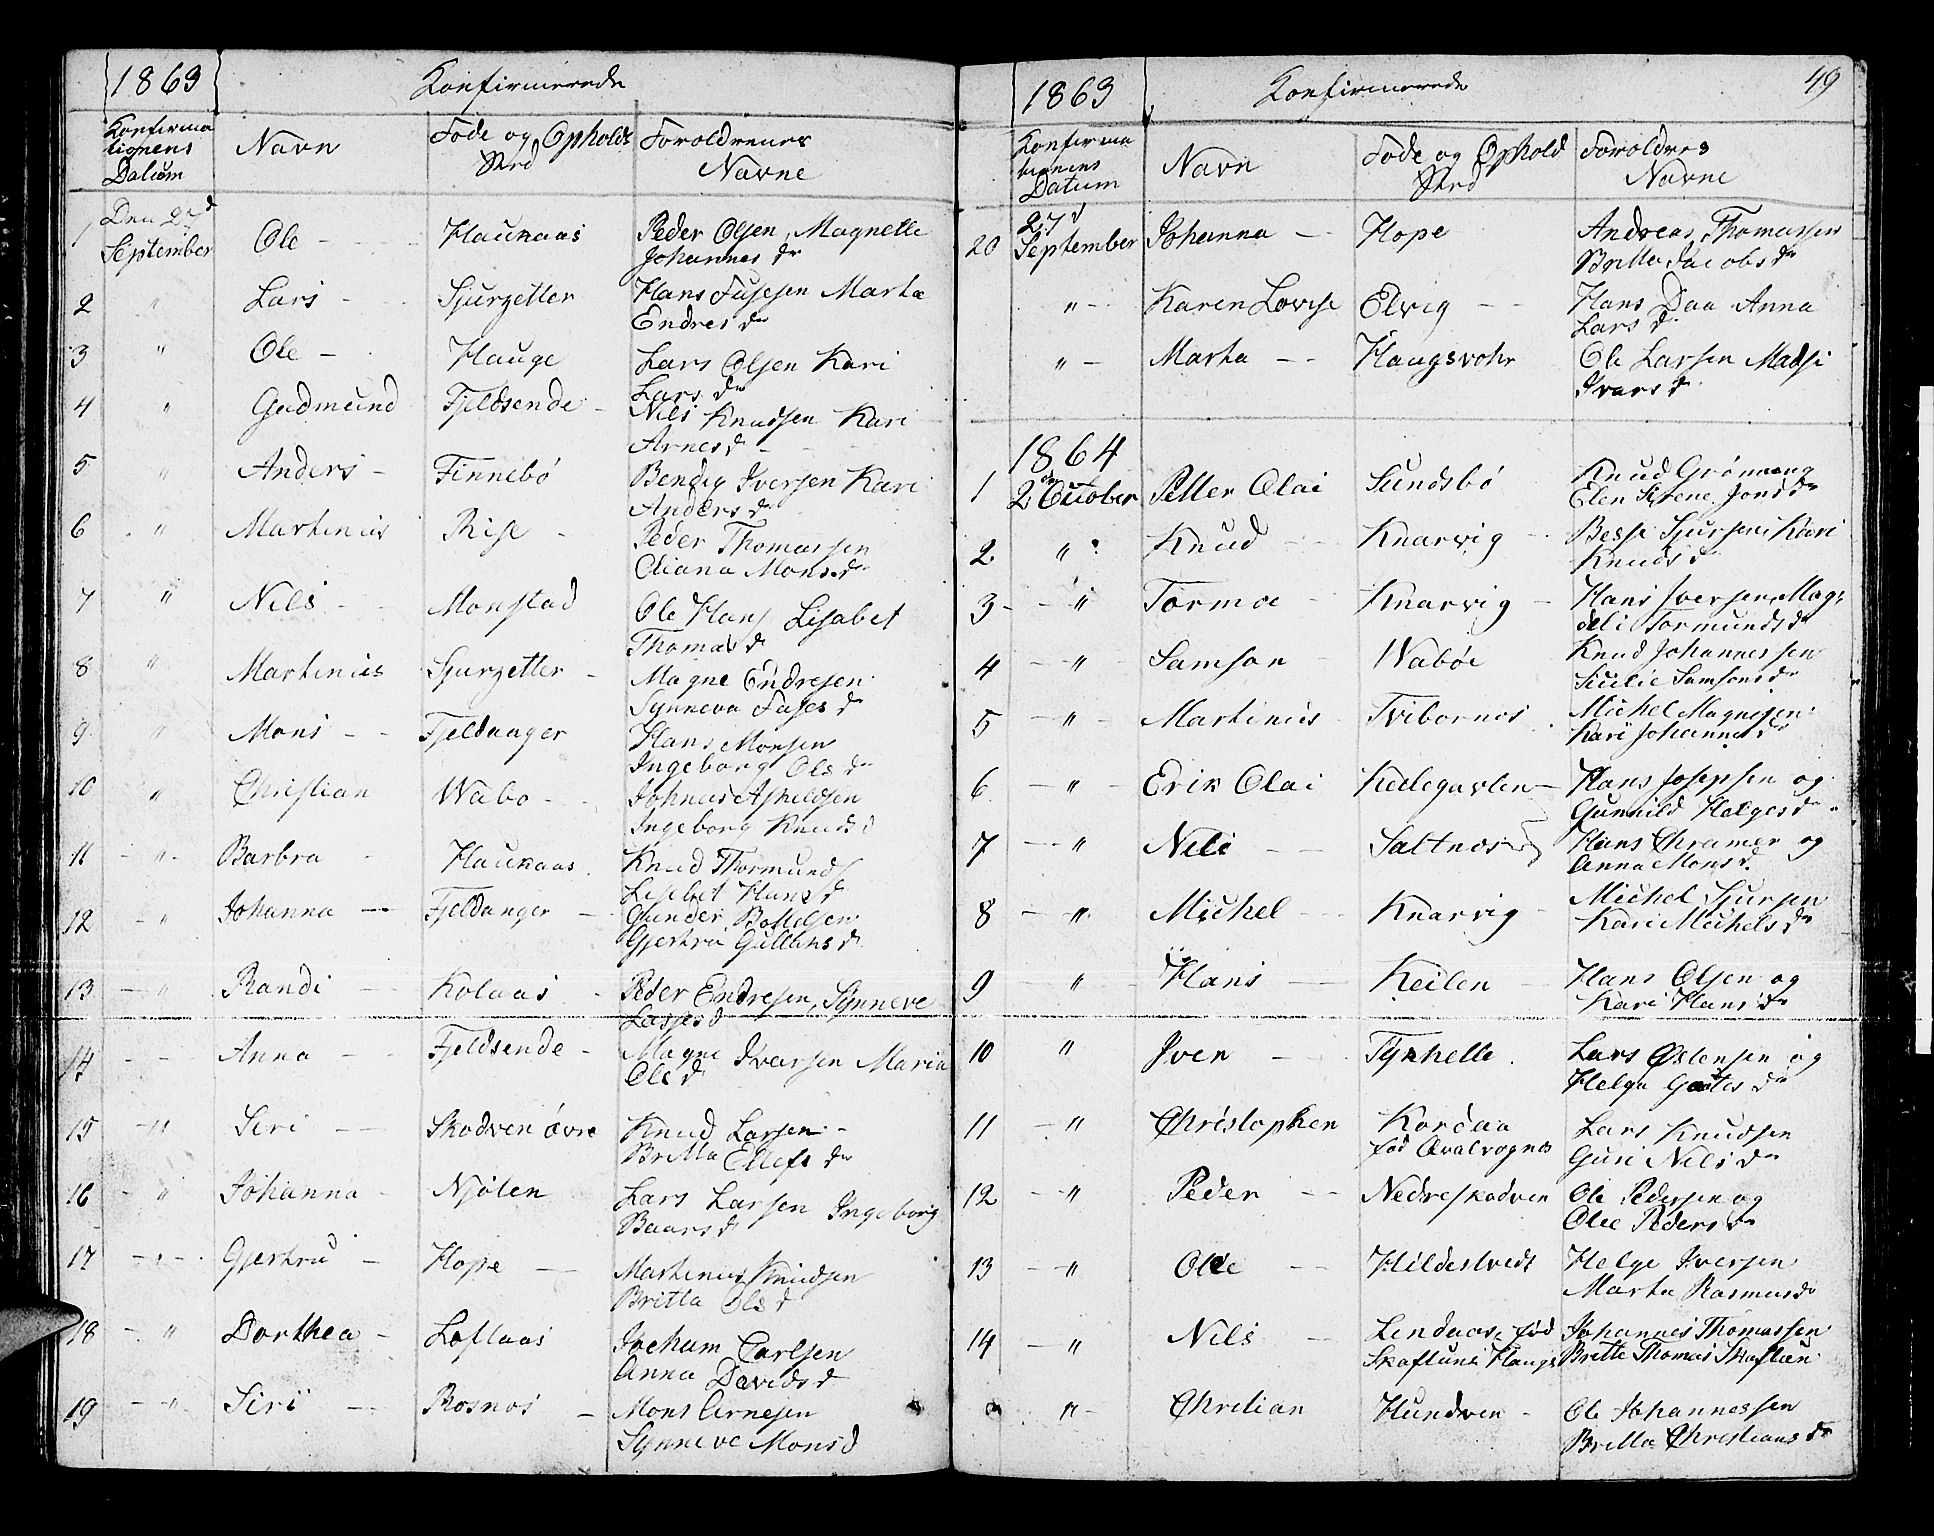 1863 Konfirmerede
Konfirma
tionens
Datum
Navn
Føde og Opholds
Sted
Foreldrenes
Navne
1 Den 27d
September Ole Haukaas Peder Olsen, Magnelle
Johannes dr
2 " Lars Sjurzetter Hans Fusesen Marta
Endres dr
3 " Ole Hauge Lars Olsen Kari
Lars dr
4 " Gudmund Fjeldsende Nils Knudsen Kari
Arnes dr
5 " Anders Finnebø Bendig Iversen Kari
Anders dr
6 " Martinius Rise Peder Thomassen
Oliana Mons dr
7 " Nils Monstad Ole Hans Lisabet
Thomas dr
8 " Martinius Sjurzetter Magne Endresen
Synneva Fuses dr
9 " Mons Fjeldanger Hans Monsen
Ingeborg Ols dr
10 " Christian Wabø Johnes Askeldsen
Ingeborg Knuds d
11 " Barbra Haukaas Knud Thormunds
Lisebet Hans d
12 " Johanna Fjeldanger Gunder Bottelsen
Gjertru Gullens d
13 " Randi Kolaas Peder Endresen, Synneve
Lasses d
14 Anna Fjeldsende Magne Ivarsen Maria
Ols d
15 " Siri Skodven øvre Knud Larsen
Britta Ellefs dr
16 " Johanna Njølen Lars Larsen Ingeborg
Baars d
17 " Gjertru Hope Martinius Knudsen
Britta Ols d
18 " Dorthea Loflaas Jochum Carlsen
Anna Davids d
19 " Siri Rosnos Mons Arnesen
Synneve Mons d
1863 Konfirmerede 49
Konfirma
tionens
Datum
Navn
Føde og Ophold
Sted
Foreldres
Navne
20 27d
September Johanna Hope Andreas Thomassen
Britta Jacobs dr
" Karen Lovise Elvig Hans Daa Anna
Lars d
" Marta Haugsvohr Ole Larsen Madsi
Ivars d
1864
1 2den October Petter Olai Sundsbø Knud Grønning
Elen Sirene Jons dr
2 " Knud Knarvig Besse Sjursen Kari
Knuds d
3 " Tormoe Knarvig Hans Iversen, Mag
deli Tormunds dr
4 " Samson Wabøe Knud Johannessen
Sicilie Samsons dr
5 " Martinius Tvibornos Michel Magnesen
Kari Johannes dr
6 " Erik Olai Keilegavlen Hans Josepsen og
Gunnild Helges dr
7 " Nils Saltnos Hans Chramer og
Anna Mons d.
8 " Michel Knarvig Michel Sjursen
Kari Michels dr
9 " Hans Keilen Hans Olsen og
Kari Hans dr
10 " Iver Tynhelle Lars Østensen og
Helga Gautes dr
11 " Christophen Kordaa
fød Qvalvognes Lars Knudsen
Guri Nils dr
12 " Peder Nedreskodven Ole Pedersen og
Olee Peders dr
13 " Ole Hildestvedt Helge Iversen
Marta Rasmus dr
14 " Nils Lendaas, fød
Skaftune Hauge Johannes Thomassen
Britte Thomas Skaftun
" Christian Hundven Ole Johannessen
Britta Christians dr